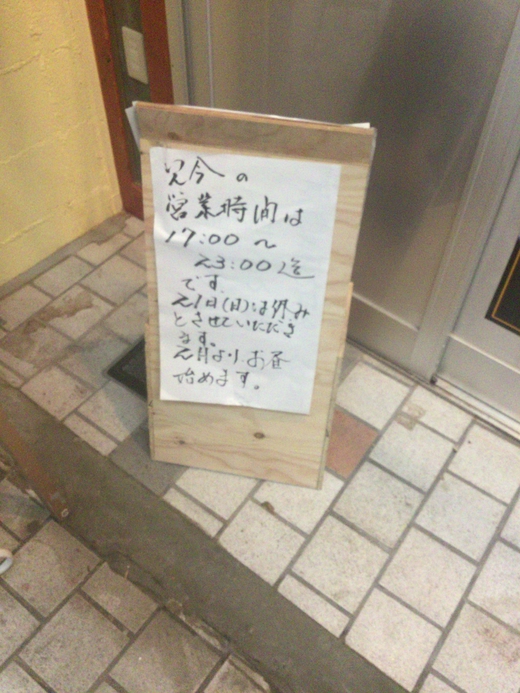 只今の
営業時間は
17:00〜
23:00迄
です。
21日(日)は休み
とさせていただき
ます。
2月よりお昼
始めます。